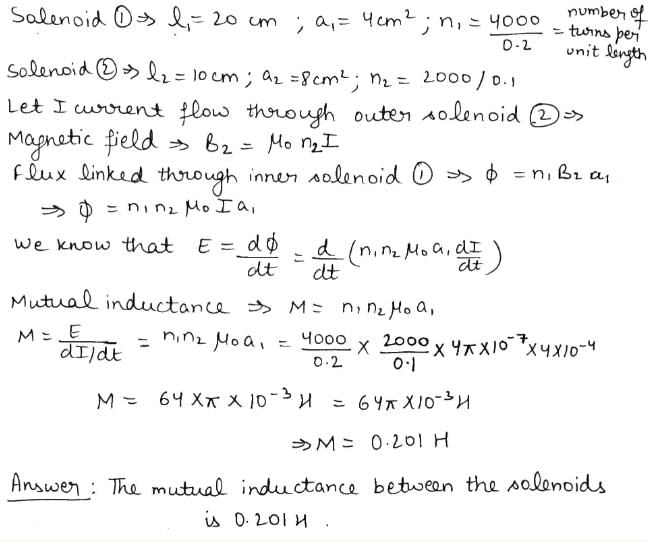 Solenoid ① ⇒ l₁ = 20 cm ; a₁ = 4cm² ; n₁ = 4000/0.2 = number of turns per unit length
solenoid ② ⇒ l₂ = 10cm ; a₂ = 8cm² ; n₂ = 2000/0.1
Let I current flow through outer solenoid ② ⇒
Magnetic field ⇒ B₂ = μ₀ n₂ I
Flux linked through inner solenoid ① ⇒ ϕ = n₁ B₂ a₁
⇒ ϕ = n₁ n₂ μ₀ I a₁
We know that E = dϕ/dt = d/dt (n₁ n₂ μ₀ a₁ dI/dt)
Mutual inductance ⇒ M = n₁ n₂ μ₀ a₁
M = E/(dI/dt) = n₁n₂ μ₀ a₁ = 4000/0.2 × 2000/0.1 × 4π×10⁻⁷ × 4×10⁻⁴
M = 64 × π × 10⁻³ H = 64π ×10⁻³ H
⇒ M = 0.201 H
Answer : The mutual inductance between the solenoids
is 0.201 H .